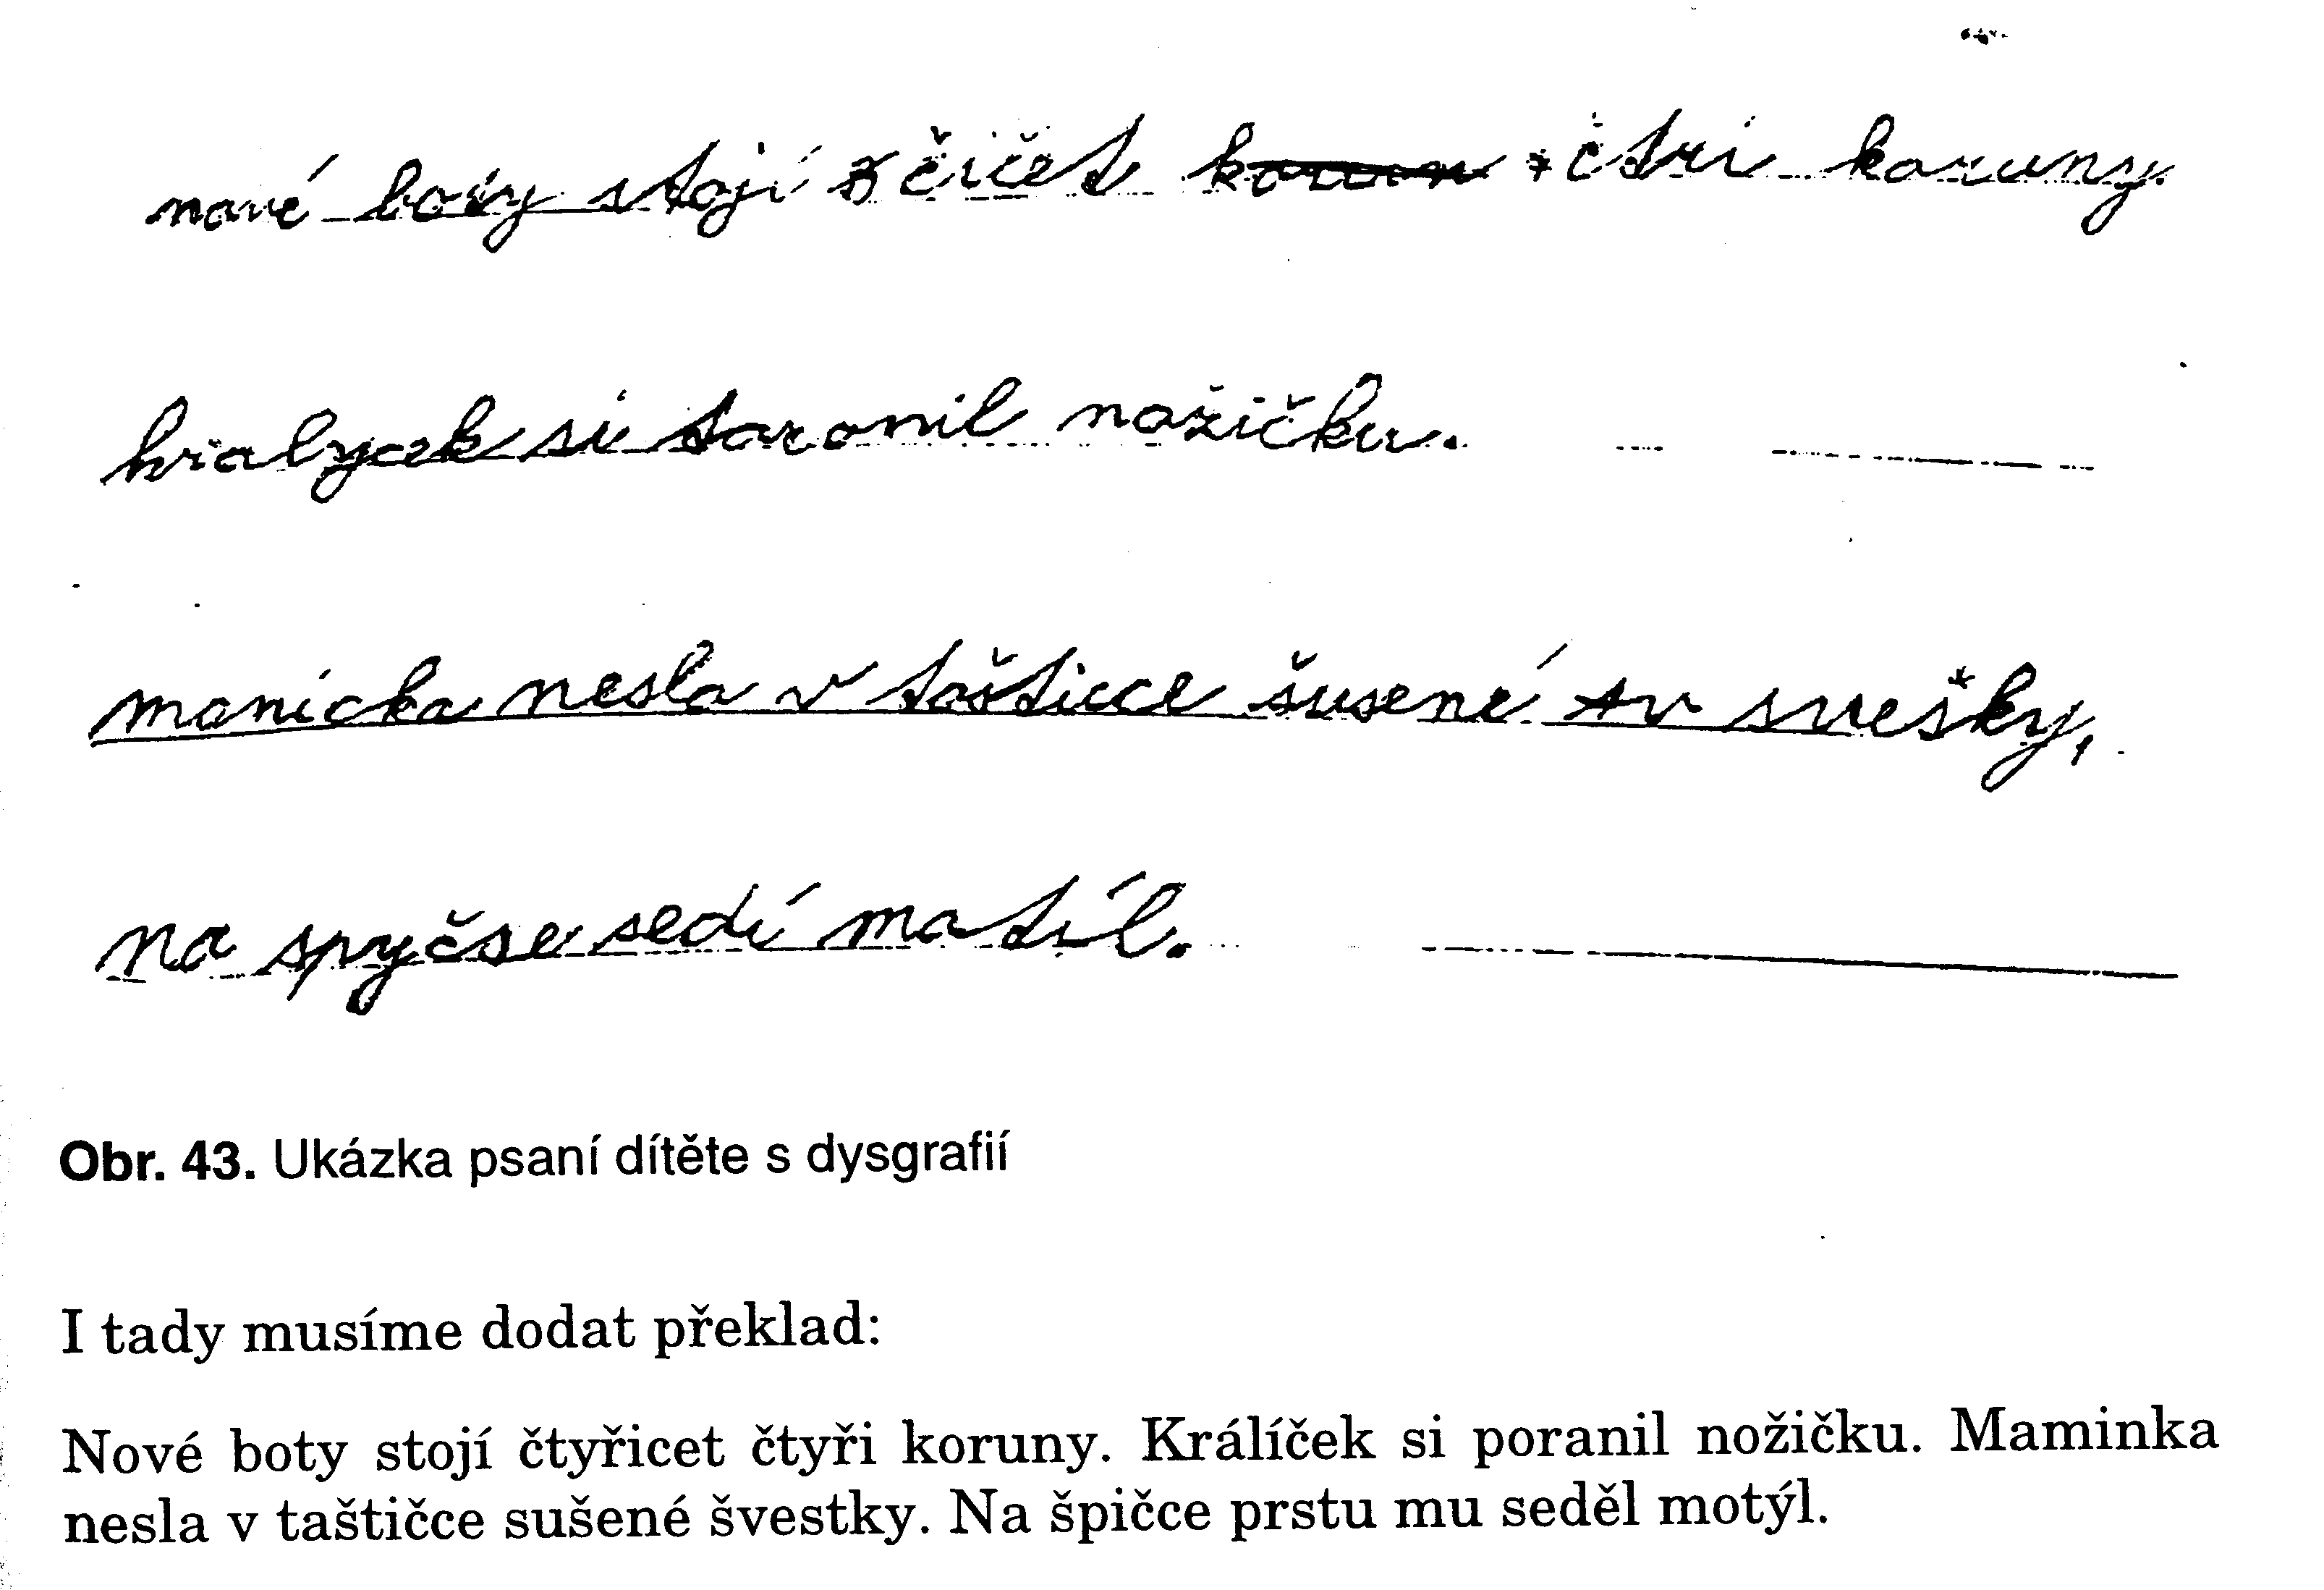 nové boty stojí čičet korun čtri koruny.
kralycek si taronil nožičku.
manicka nesla v taštice šusené sv svešky,
na spyčse sedí motíl.
Obr. 43. Ukázka psaní dítěte s dysgrafií
I tady musíme dodat překlad:
Nové boty stojí čtyřicet čtyři koruny. Králíček si poranil nožičku. Maminka
nesla v taštičce sušené švestky. Na špičce prstu mu seděl motýl.